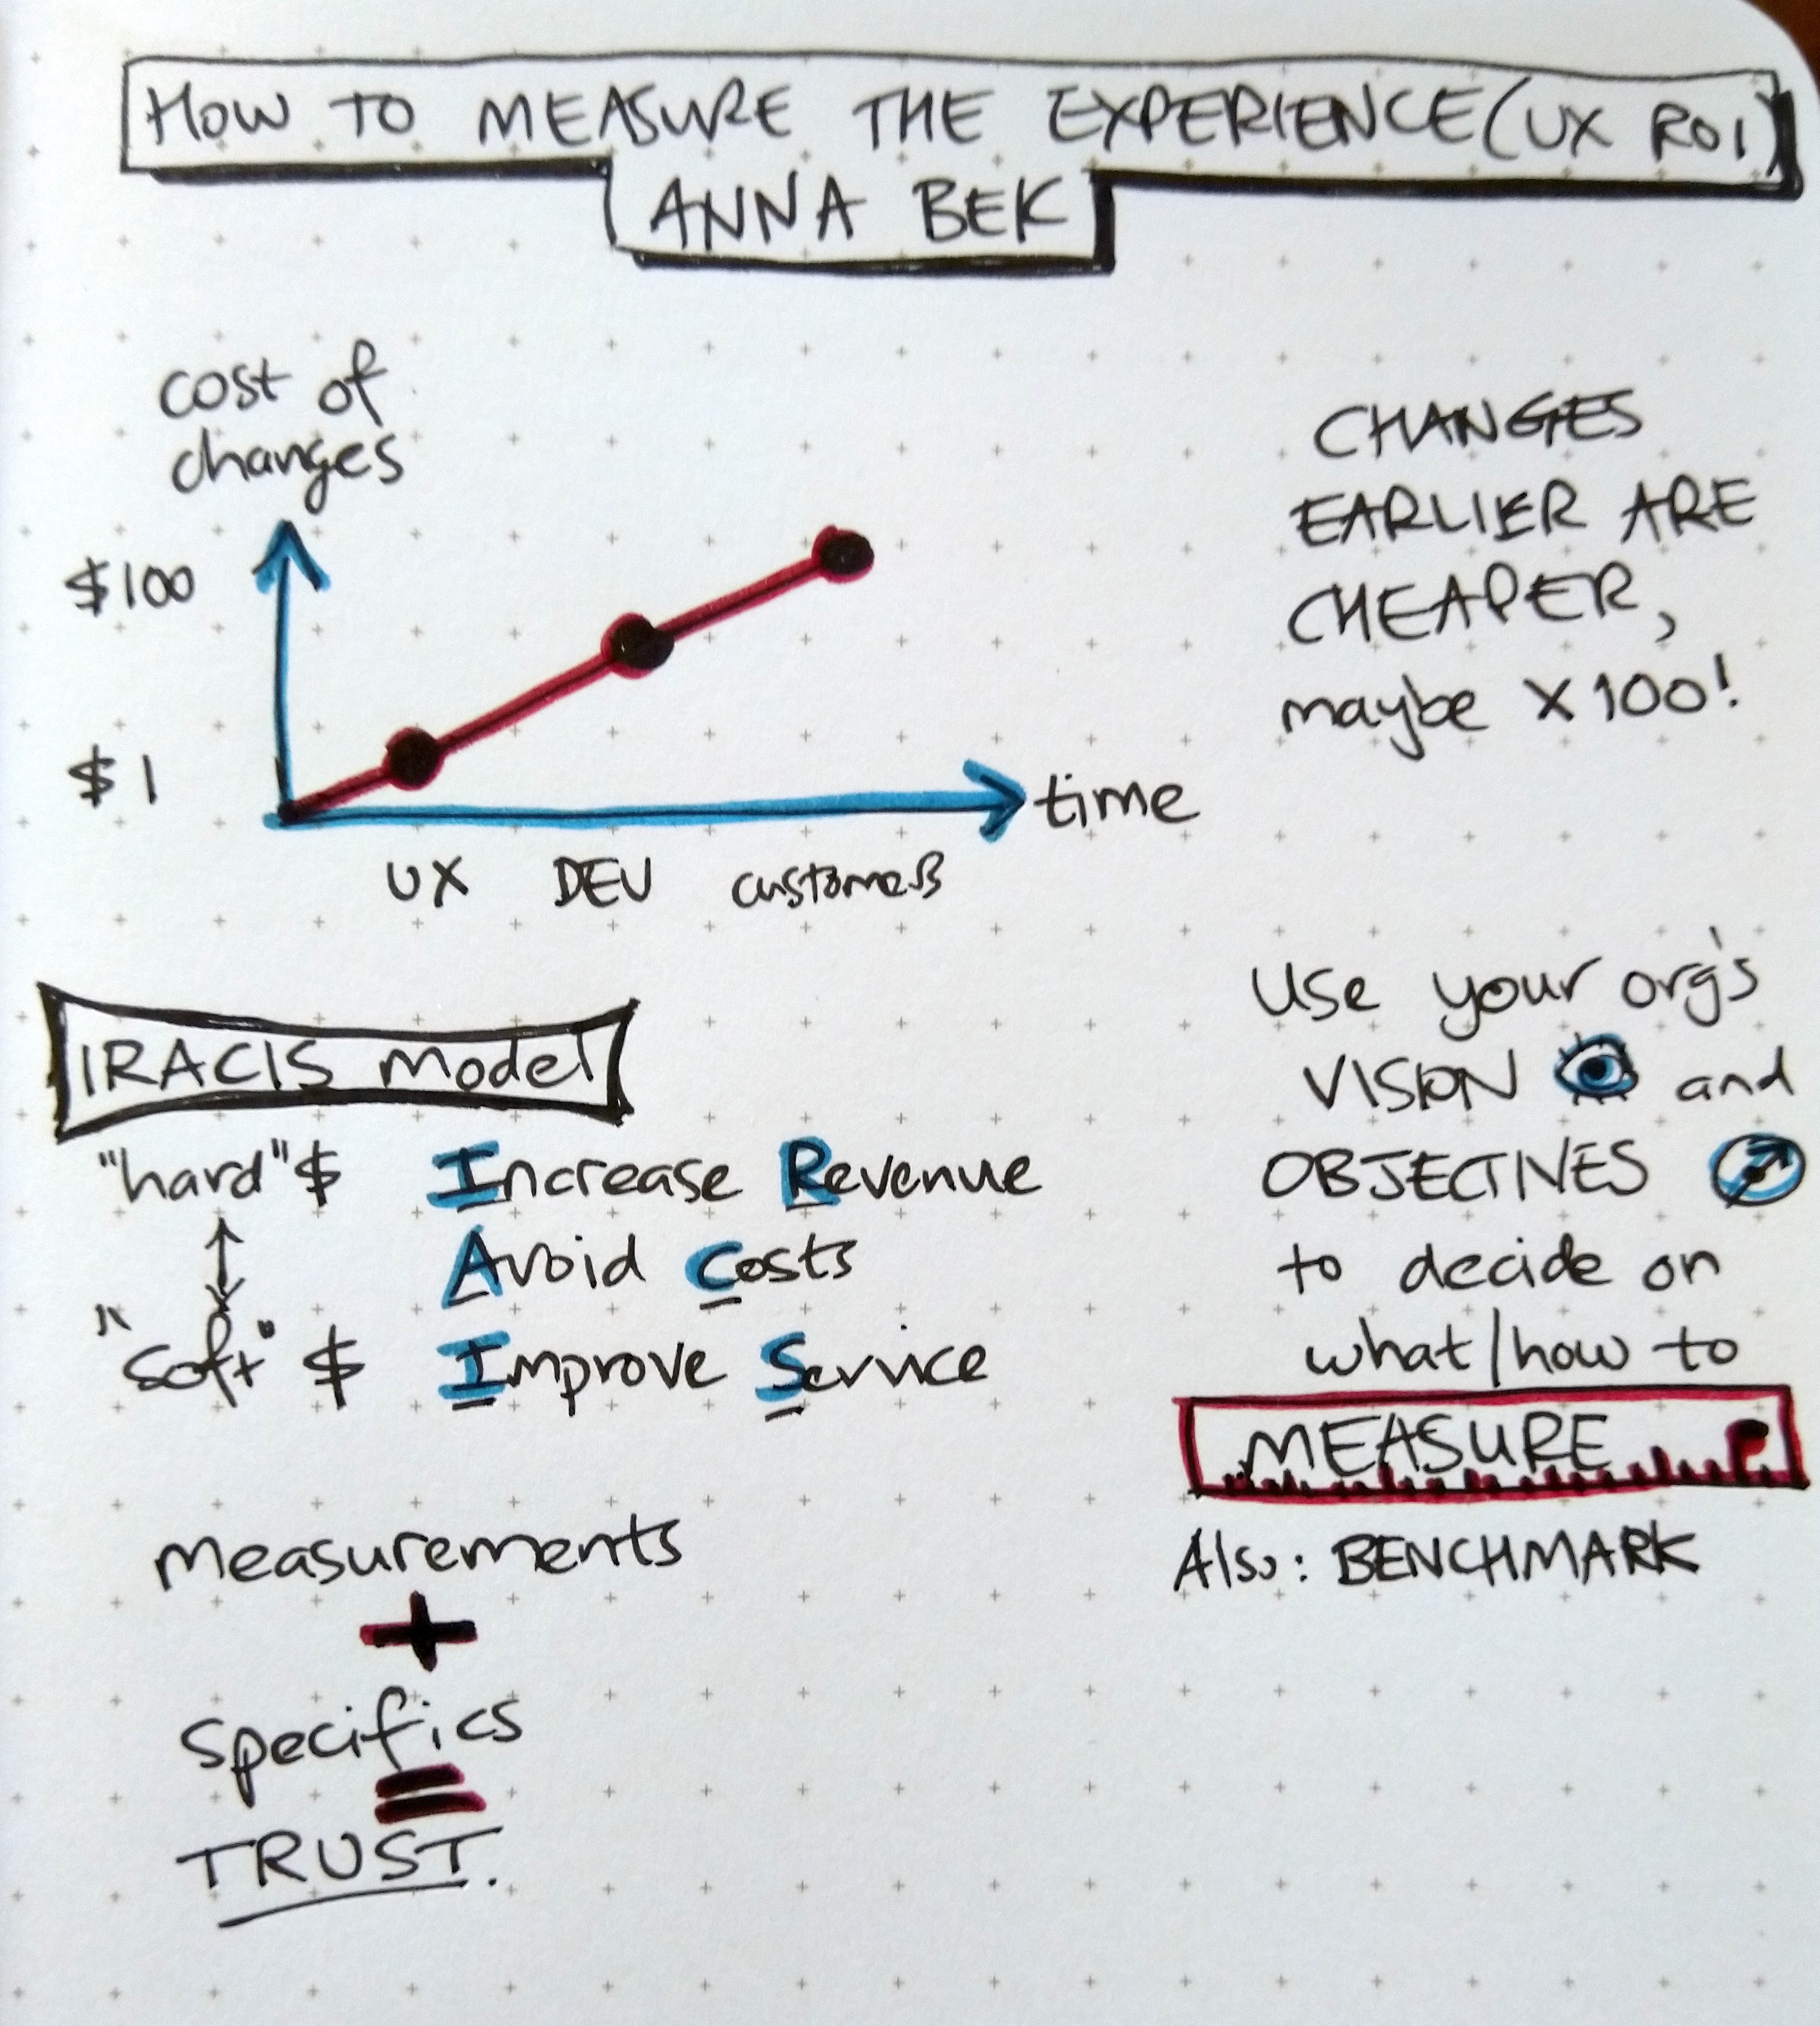 HOW TO MEASURE THE EXPERIENCE (UX ROI)
ANNA BEK
cost of
changes
$100
$1
time
UX DEV customers
CHANGES
EARLIER ARE
CHEAPER,
maybe X100!
IRACIS model
"hard" $ Increase Revenue
Avoid Costs
"soft" $ Improve Service
Use your org's
VISION and
OBJECTIVES
to decide on
what/how to
MEASURE
Also: BENCHMARK
measurements
+
specifics
=
TRUST.